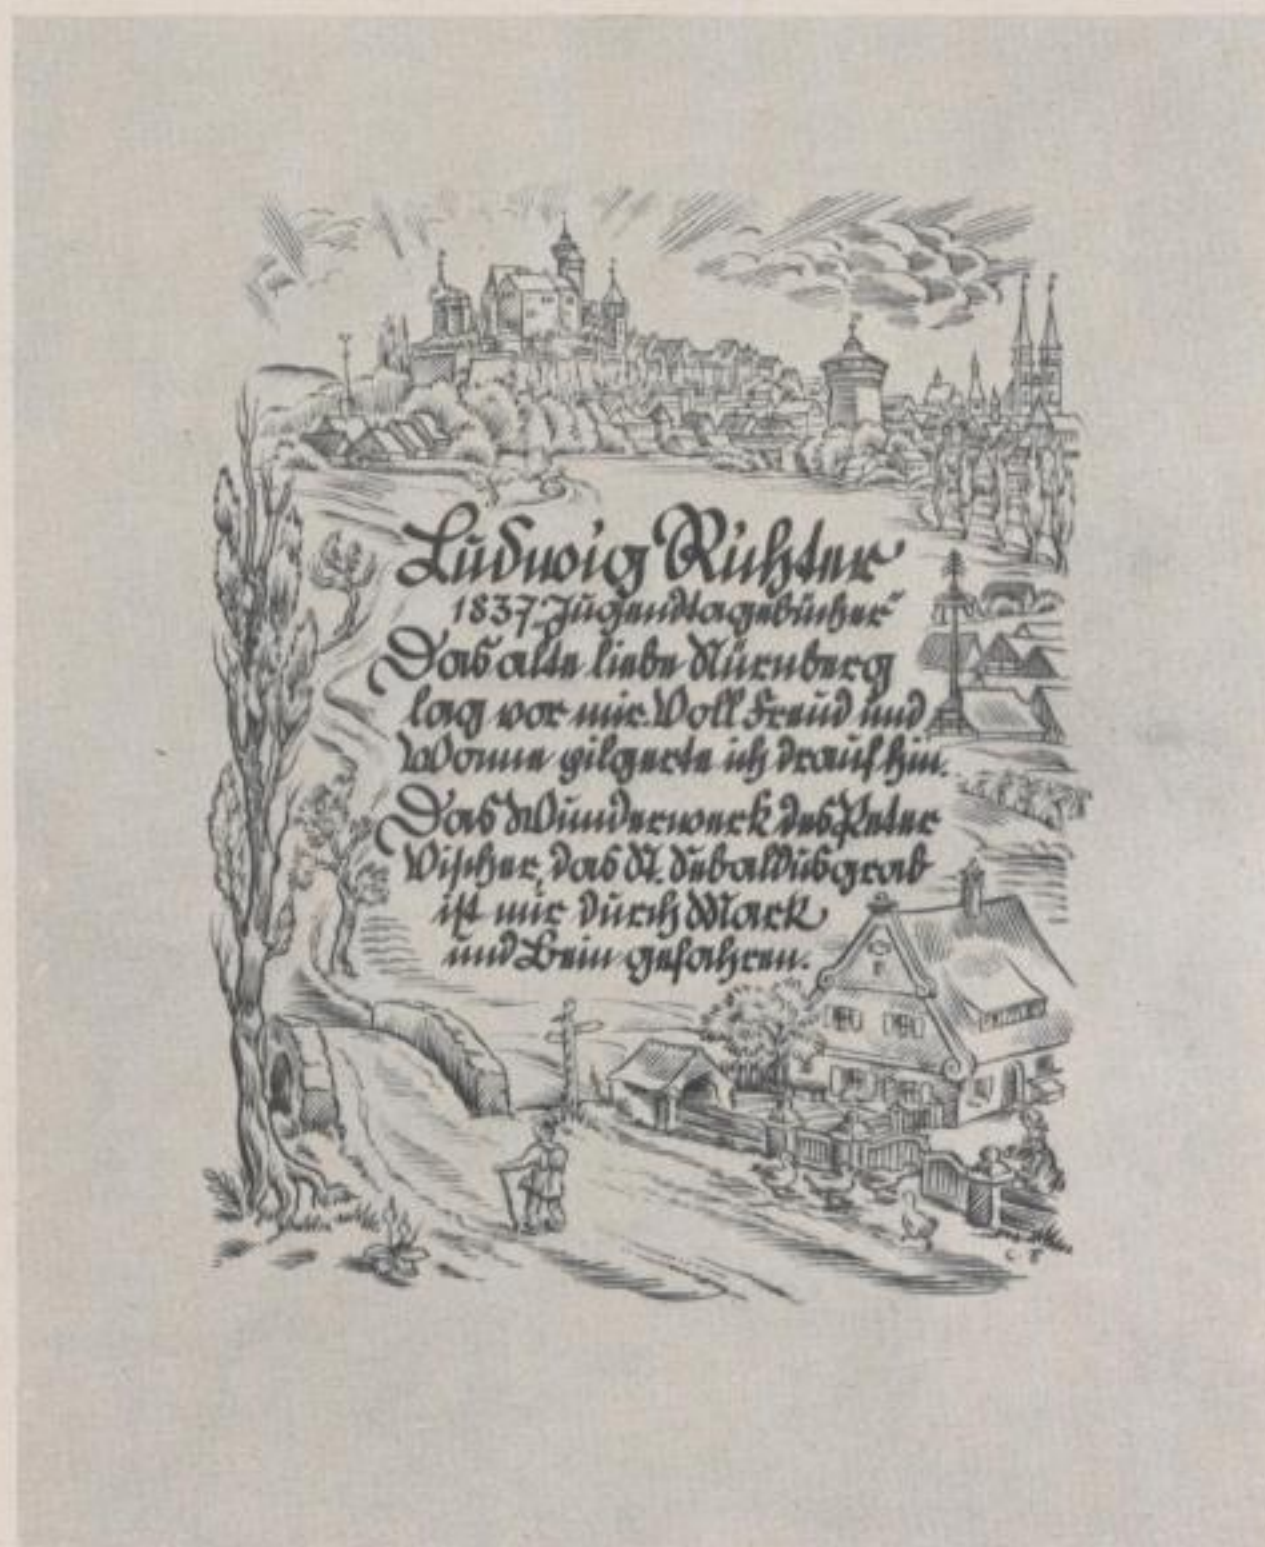 Ludwig Richter
1837 „Jugendtagebücher“
Das alte liebe Nürnberg
lag vor mir. Voll Freud und
Wonne pilgerte ich drauf hin.
Das Wunderwerk des Peter
Vischer, das St. Sebaldusgrab
ist mir durch Mark
und Bein gefahren.